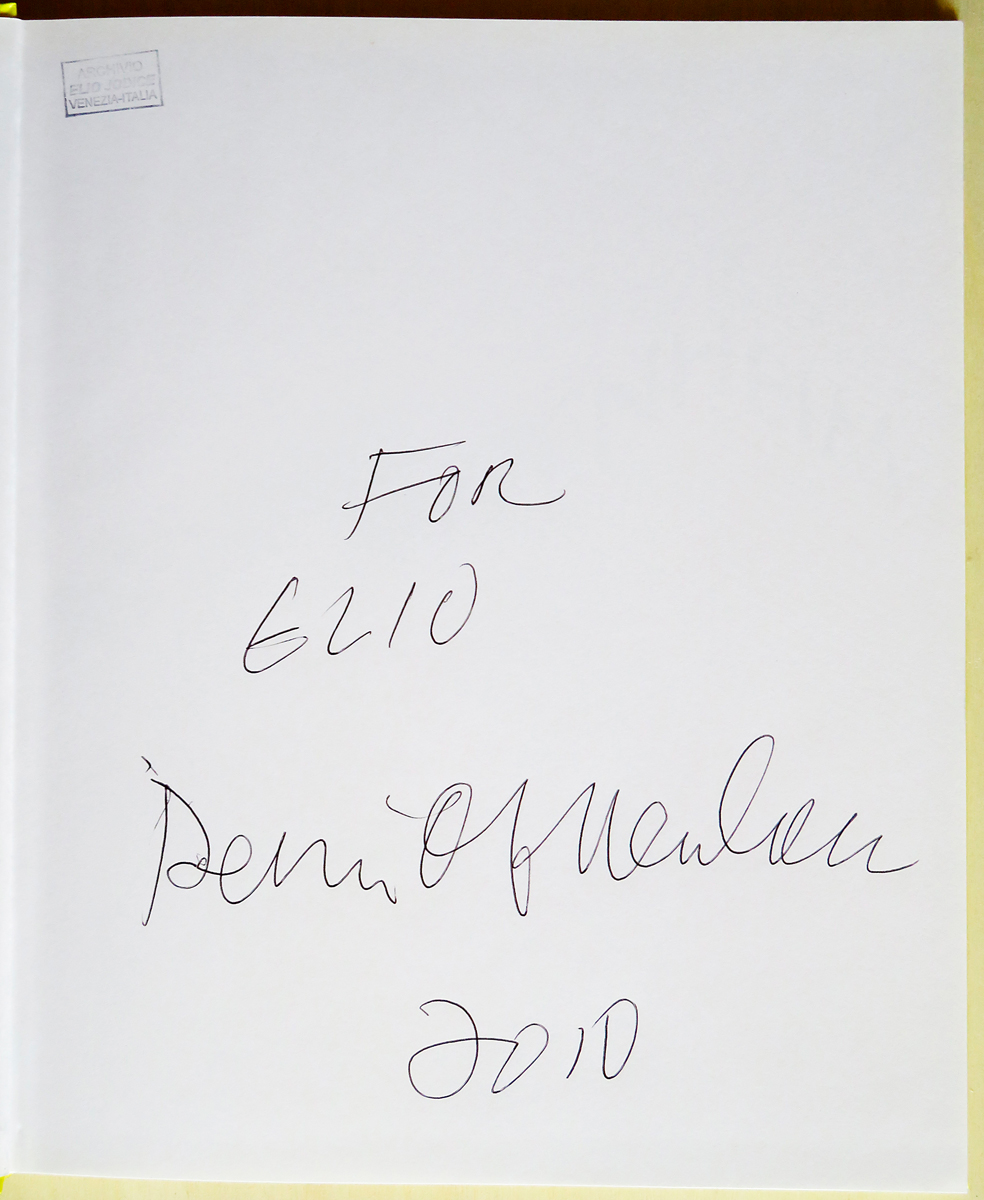 ARCHIVIO
ELIO JODICE
VENEZIA-ITALIA
FOR
ELIO
Dennis Oppenheim
2010